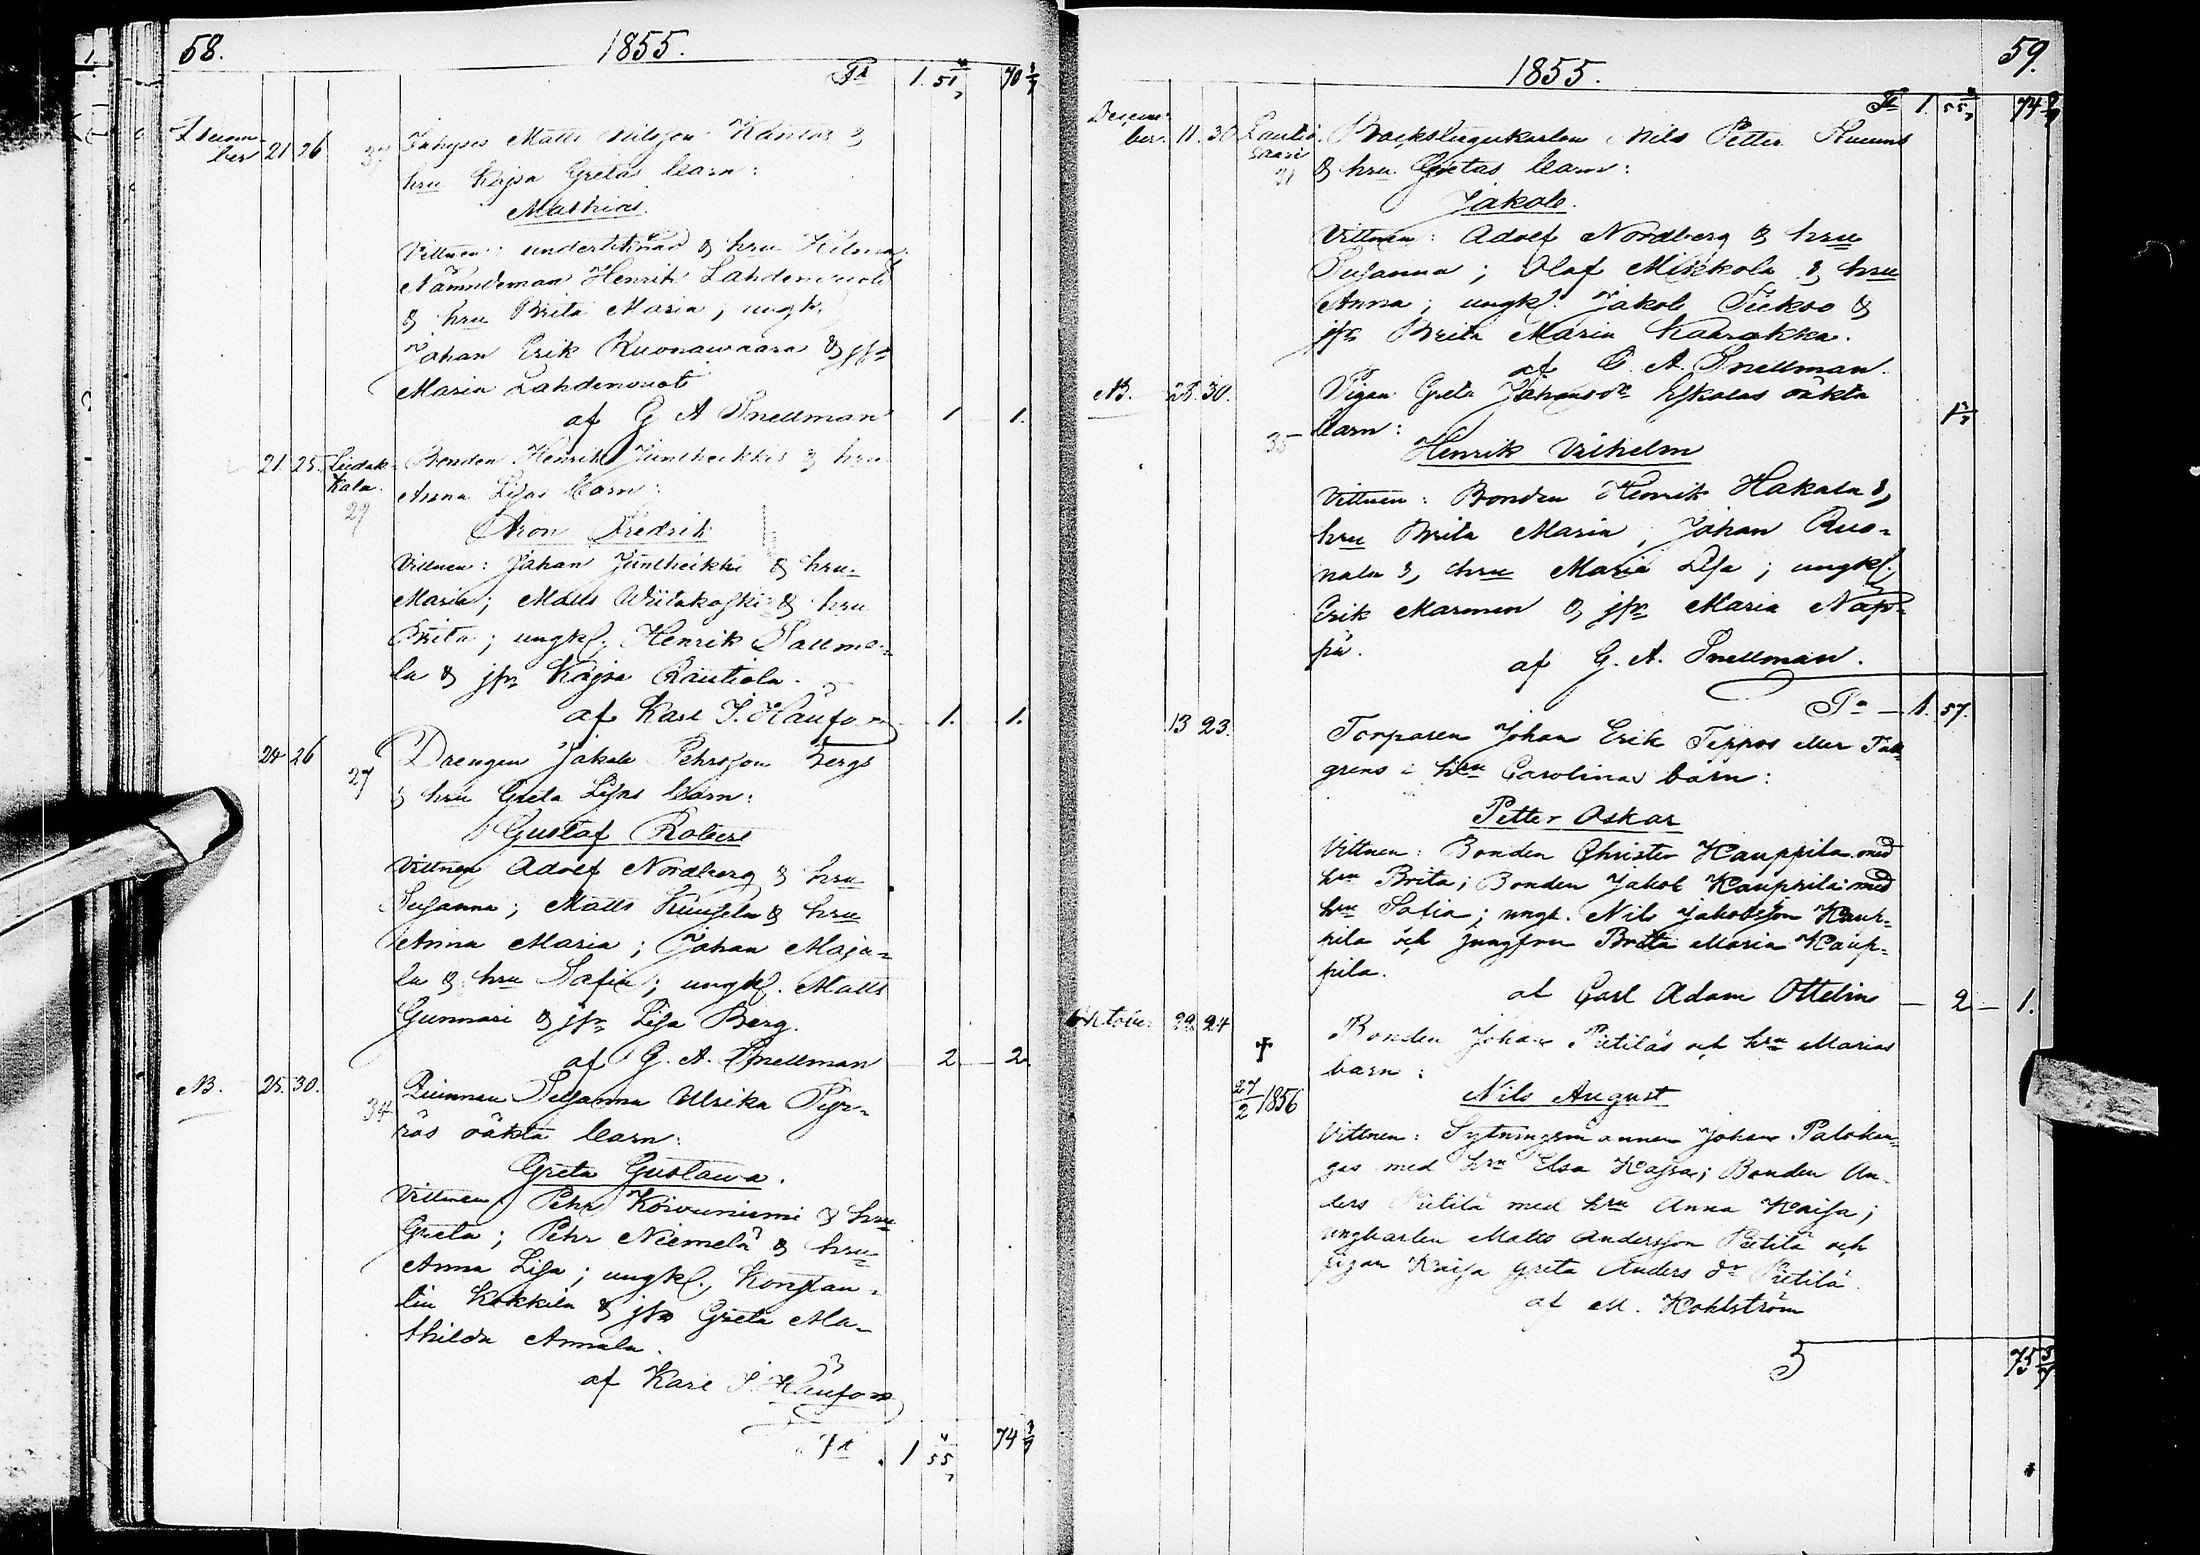 58.
1855.
Tr 1. 51 4/7 70 3/7
Decem-
ber 21 26
Inhyses Matts Nilsson Kantos &
hru Kajsa Gretas barn:
Mathias
Vittnen: underteknad & hru Hilma,
Nämndeman Henrik Lahdenvuoti
& hru Brita Maria, ungk.
Johan Erik Kuonawaara & jfr
Maria Lahdenvuoti
af G A Snellman 1 1.
21 25. Liedak-
kala.
29
Bonden Henrik Juntheikkis & hru
Anna Lisas barn:
Aron Fredrik
Vittnen: Johan Juntheikki & hru
Maria; Matts Wiitakoski & hru
Brita; ungk. Henrik Sallme-
la & jfr Kajsa Rautiola.
af Karl J. 1. 1.
24 26
27
Drengen Jakob Pehrsson Bergs
& hru Greta Lisas barn:
Gustaf Robert
Vittnen Adolf Nordberg & hru
Susanna; Matts & hru
Anna Maria; Johan Maja-
la & hru Safia; ungk. Matts
Gunnari & jfr Lisa Berg.
af G. A. Snellman 2 2.
NB. 25. 30.
34
Qvinnan Susanna Ulrika Pyr-
räs oäkta barn:
Greta Gustawa.
Vittnen: Pehr Koivuniemi & hru
Greta; Pehr Niemelä & hru
Anna Lisa; ungk. Konstan-
tin Kokkila & jfr Greta Ma-
thilda Annala.
af Karl J.
Tr 1 55 4/7 74 3/7
59.
1855.
Tr 1. 55 4/7 74 3/7
Decem-
ber. 11. 30. Lautio-
saari
31
Backstugukarlen Nils Petter
& hru Gretas barn:
Jakob.
Vittnen: Adolf Nordberg & hru
Susanna; Olof Mikkola & hru
Anna; ungk. Jakob & 
jfr Brita Maria Kaarakka.
af G. A. Snellman.
NB. 25. 30.
35
Pigan Greta Johansdr Eskolas oäkta
barn:
Henrik Vilhelm
Vittnen: Bonden Henrik Hakala &
hru Brita Maria, Johan Ruo-
nala &, hru Maria Lisa; ungk.
Erik Marmen & jfr Maria Näp-
pä.
af G. A. Snellman.
Tr — 1. 57.
13 23.
Torparen Johan Erik Teppos eller
grens & hru Carolinas barn:
Petter Oskar
Vittnen: Bonden Christer Kauppila med
hru Brita; Bonden Jakob Kauppila med
hru Safia; ungk. Nils Jakobsson Kaup-
pila och jungfrun Britta Maria Kaup-
pila.
af Carl Adam Ottelin — 2 — 1.
Oktober 22 24
†
27/2 1856
Bonden Johan Pietiläs och hru Marias
barn:
Nils August
Vittnen: Sytningsmannen Johan Palokan-
gas med hru Elsa Kajsa; Bonden An-
ders Pietilä med hru Anna Kaisa;
ungkarlen Matts Andersson Pietilä och
pigan Kaisa Greta Anders dr Pietilä.
af M. Kohlström
75 3/7